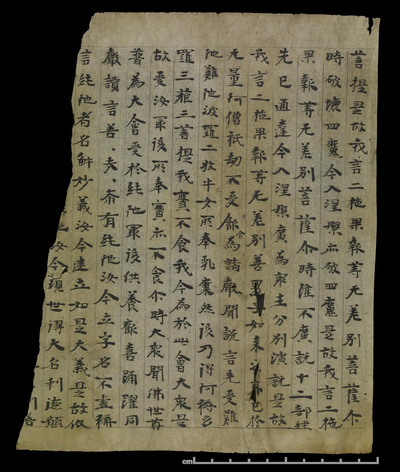 菩提是故我言二施果報等无差別菩薩尒
時破壞四魔今入涅槃亦破四魔是故我言二施
果報等无差別菩薩尒時雖不廣說十二部經
先已通達今入涅槃廣為衆生分別演說是故
我言二施果報等无差別善如來之身已於
无量阿僧祇劫不受飲食為諸聲聞說言先受難
陁難陁波羅二牧牛女所奉乳糜然後乃得阿耨多
羅三藐三菩提我實不食我今為於此會大衆是
故受汝冣後所奉實亦不食尒時大衆聞佛世尊
普為大會受於純陁冣後供養歡喜踊躍同
聲讚言善〻哉〻希有純陁汝今立字名不虛稱
言純陁者名解妙義汝今建立如是大義是故依
陁汝今現世得大名利德願
cm